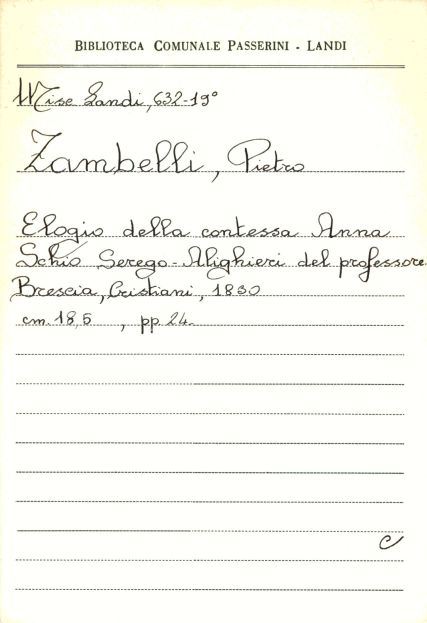 BIBLIOTECA COMUNALE PASSERINI - LANDI
Misc Landi, 632-19°
Zambelli, Pietro
Elogio della contessa Anna
Schio Serego-Alighieri del professore.
Brescia, Cristiani, 1830
cm. 18,5 , pp 24.
C